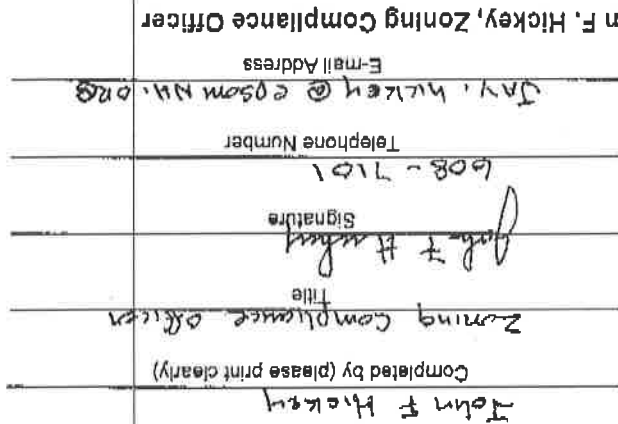 John F Hickey
Completed by (please print clearly)
Zoning Compliance Officer
Title
John F Hickey
Signature
608-7101
Telephone Number
JAY.hickey@epsomNH.org
E-mail Address
n F. Hickey, Zoning Compliance Officer